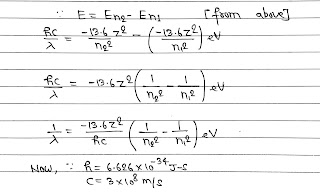 ∵ E = En₂ - En₁ [from above]
hc/λ = -13.6 z²/n₂² - (-13.6 z²/n₁²) eV
hc/λ = -13.6 z² (1/n₂² - 1/n₁²) eV
1/λ = -13.6 z²/hc (1/n₂² - 1/n₁²) eV
Now, ∵ h = 6.626 × 10⁻³⁴ J-s
C = 3 × 10⁸ m/s